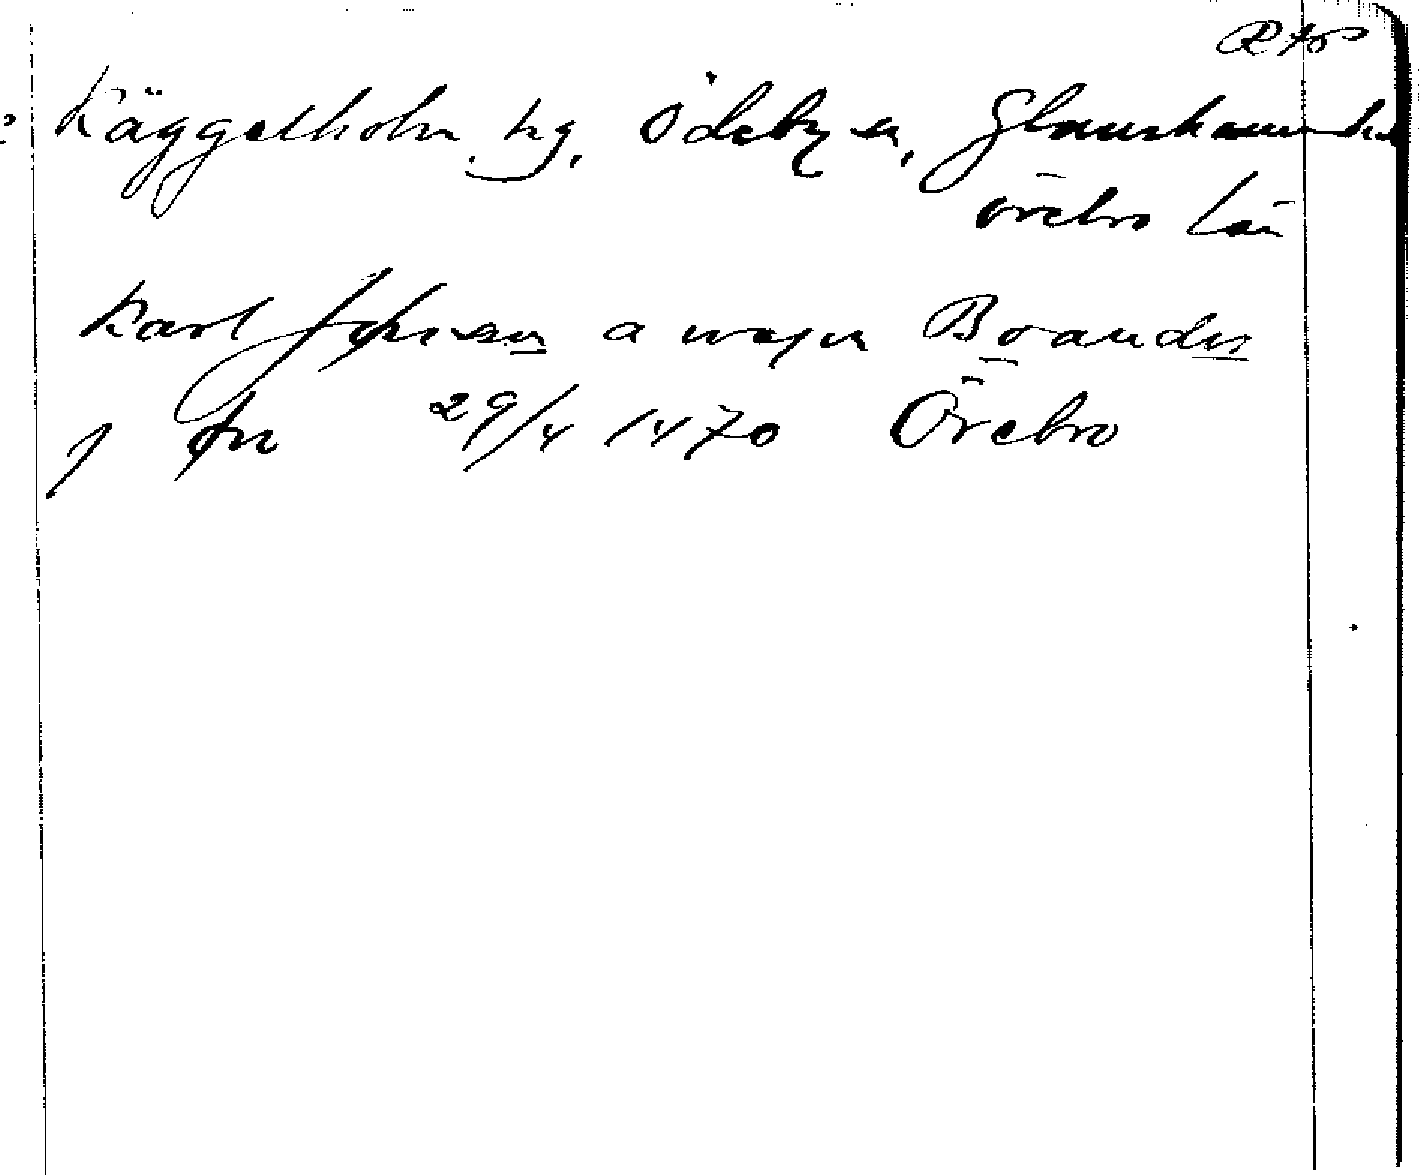 Käggelholm, hg, Ödeby sn, Glanshammar hd
Örebro län
Karl Johansson a wapn Brandsn
j fru 29/4 1470 Örebro